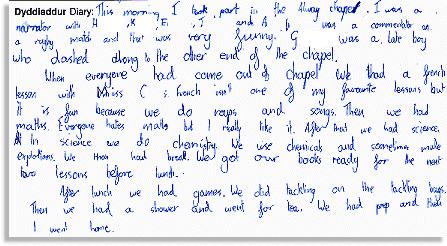 Dyddiaddur Diary: This morning I took part in the Alway chapel. I was a
narrator with H, K, E, J and A. B was a commentator on
a rugby match and that was very funny. G was a late boy
who dashed along to the other end of the chapel.
When everyone had come out of chapel we had a french
lesson with Miss C is french isn't one of my favourite lessons but
it is fun because we do raps and songs. Then we had
maths. Everyone hates maths but I really like it. After that we had science.
In science we do chemistry. We use chemicals and sometimes make
explotions. We then had break. We got our books ready for the next
two lessons before lunch.
After lunch we had games. We did tackling on the tackling bags.
Then we had a shower and went for tea. We had prep and then
I went home.